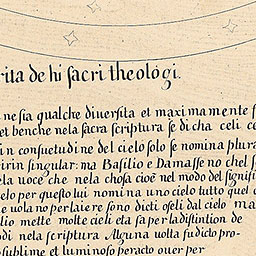 rita de hi sacri theologi.
ne sia qualche diversita et maximamente s
et benche nela sacra scriptura se dicha celi ce
in consuetudine del cielo solo se nomina plura
irin singular: ma Basilio e Damasseno chel s
eta voce che nela chosa cioè nel modo del signifi
elo per questo lui nomina uno cielo tutto quel c
e uola no per laiere sono dicti oseli dal cielo ma
lio mette molte cieli eta sa per la distintion de
di nela scriptura Alguna uolta su dicto pro-
sublime et luminoso peracto ouer per